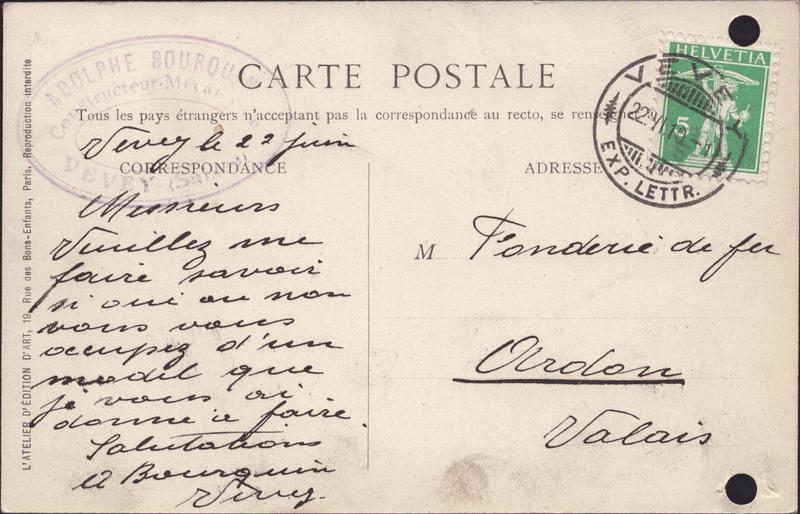 ADOLPHE BOURQUIN
Constructeur-Mécan
VEVEY (Suisse)
CARTE POSTALE
Tous les pays étrangers n'acceptant pas la correspondance au recto, se renseigne
CORRESPONDANCE
ADRESSE
HELVETIA
5
VEVEY
22.VI.10.-1
EXP. LETTR.
Vevey le 22 juin
Messieurs
Veuillez me
faire savoir
si oui ou non
vous vous
occupez d'un
model que
je vous ai
donné à faire.
Salutations
A Bourquin
Vevey.
M Fonderie de fer
Ardon
Valais
L'ATELIER D'ÉDITION D'ART, 19, Rue des Bons-Enfants, Paris. Reproduction interdite